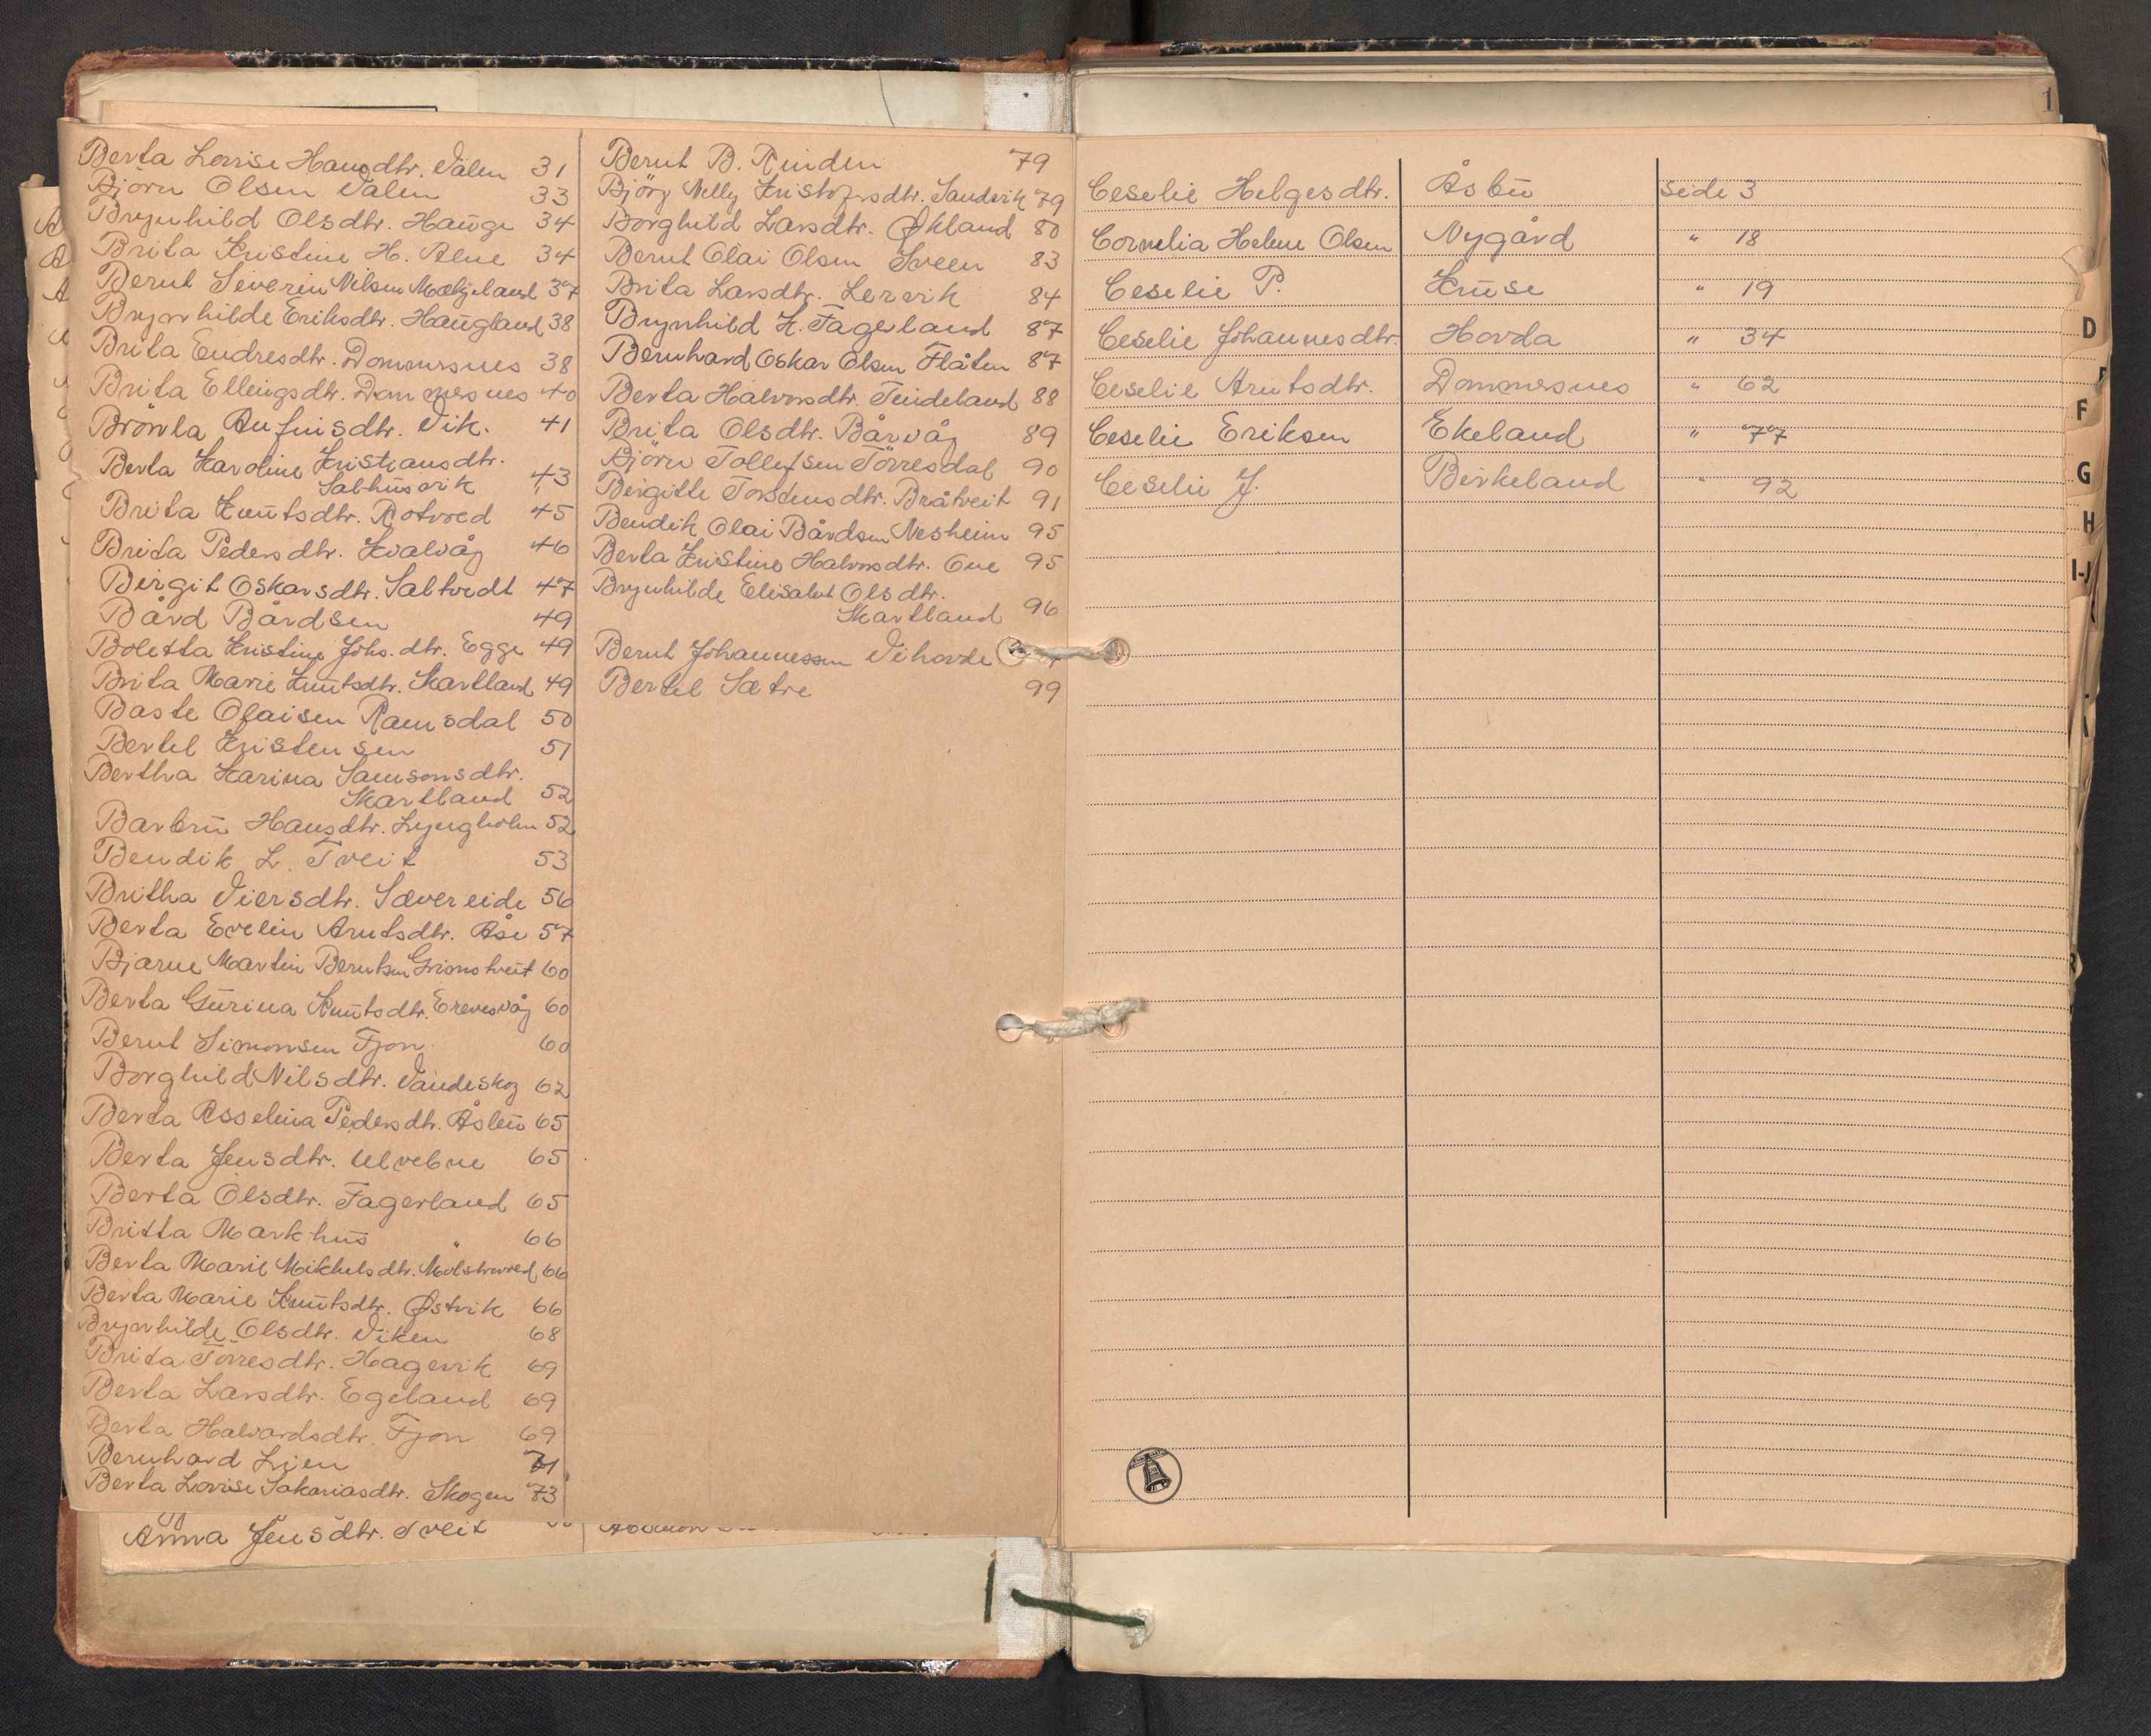 Berta Lovise Hansdtr. Valen 31
Björn Olsen Valen 33
Brynhild Olsdtr. Hauge 34
Brita Kristine H. Alne 34
Bernt Severin Nilsen Mækjeland 37
Brynhilde Eriksdtr. Haugland 38
Brita Endresdtr. Dommersnes 38
Brita Ellingsdtr. Dommersnes 40
Brönla Anfinsdtr. Vik. 41
Berta Karoline Kristiansdtr.
Salhusvik 43
Brita Knutsdtr. Rotvoed 45
Brita Pedersdtr. Kvalvåg 46
Birgit Oskarsdtr. Saltvedt 47
Bård Bårdsen 49
Boletta Kristine Johs.dtr. Egge 49
Brita Marie Knutsdtr. Skartland 49
Baste Olaisen Ramsdal 50
Bertel Kristensen 51
Bertha Karina Samsonsdtr.
Skartland 52
Barbru Hansdtr. Lyngholm 52
Bendik L. Tveit 53
Britha Viersdtr. Sævereide 56
Berta Evelin Arntsdtr. Åse 57
Bjarne Martin Berntsen Grimstveit 60
Berta Gurina Knutsdtr. Erevesvåg 60
Bernt Simonsen Fjon 60
Borghild Nilsdtr. Vandeskog 62
Berta Asselina Pedersdtr. Åsbu 65
Berta Jensdtr. Ulvebne 65
Berta Olsdtr. Fagerland 65
Britta Markhus 66
Berta Marie Mikkelsdtr. 66
Berta Marie Knutsdtr. Østvik 66
Brynhilde Olsdtr. Viken 68
Brita Torresdtr. Hagevik 69
Berta Larsdtr. Egeland 69
Berta Halvardsdtr. Fjon 69
Bernhard Lien 71
Berta Lovise Sakariasdtr. Skogen 73
Anna Jensdtr. Tveit
Bernt B. Rinden 79
Björg Nelly Kristofersdtr. Sandvik 79
Borghild Larsdtr. Økland 80
Bernt Olai Olsen Sveen 83
Brita Larsdtr. Lervik 84
Brynhild K. Fagerland 87
Bernhard Oskar Olsen Flåten 87
Berta Halvorsdtr. Tindeland 88
Brita Olsdtr. Bårvåg 89
Björn Tollefsen Törresdal 90
Birgitte Torstensdtr. Bråtveit 91
Bendik Olai Bårdsen Nesheim 95
Berta Kristine Halvorsdtr. One 95
Brynhilde Elisabet Olsdtr.
Skartland 96
Bernt Johannessen Vihovde
Bertel Sætre 99
1
Ceselie Helgesdtr. Åsbu side 3
Cornelia Helene Olsen Nygård " 18
Ceselie P. Kruse " 19
Ceselie Johannesdtr. Hovda " 34
Ceselie Arntsdtr. Dommersnes " 62
Ceselie Eriksen Ekeland " 77
Ceselie J. Birkeland " 92
D
F
G
H
I-J